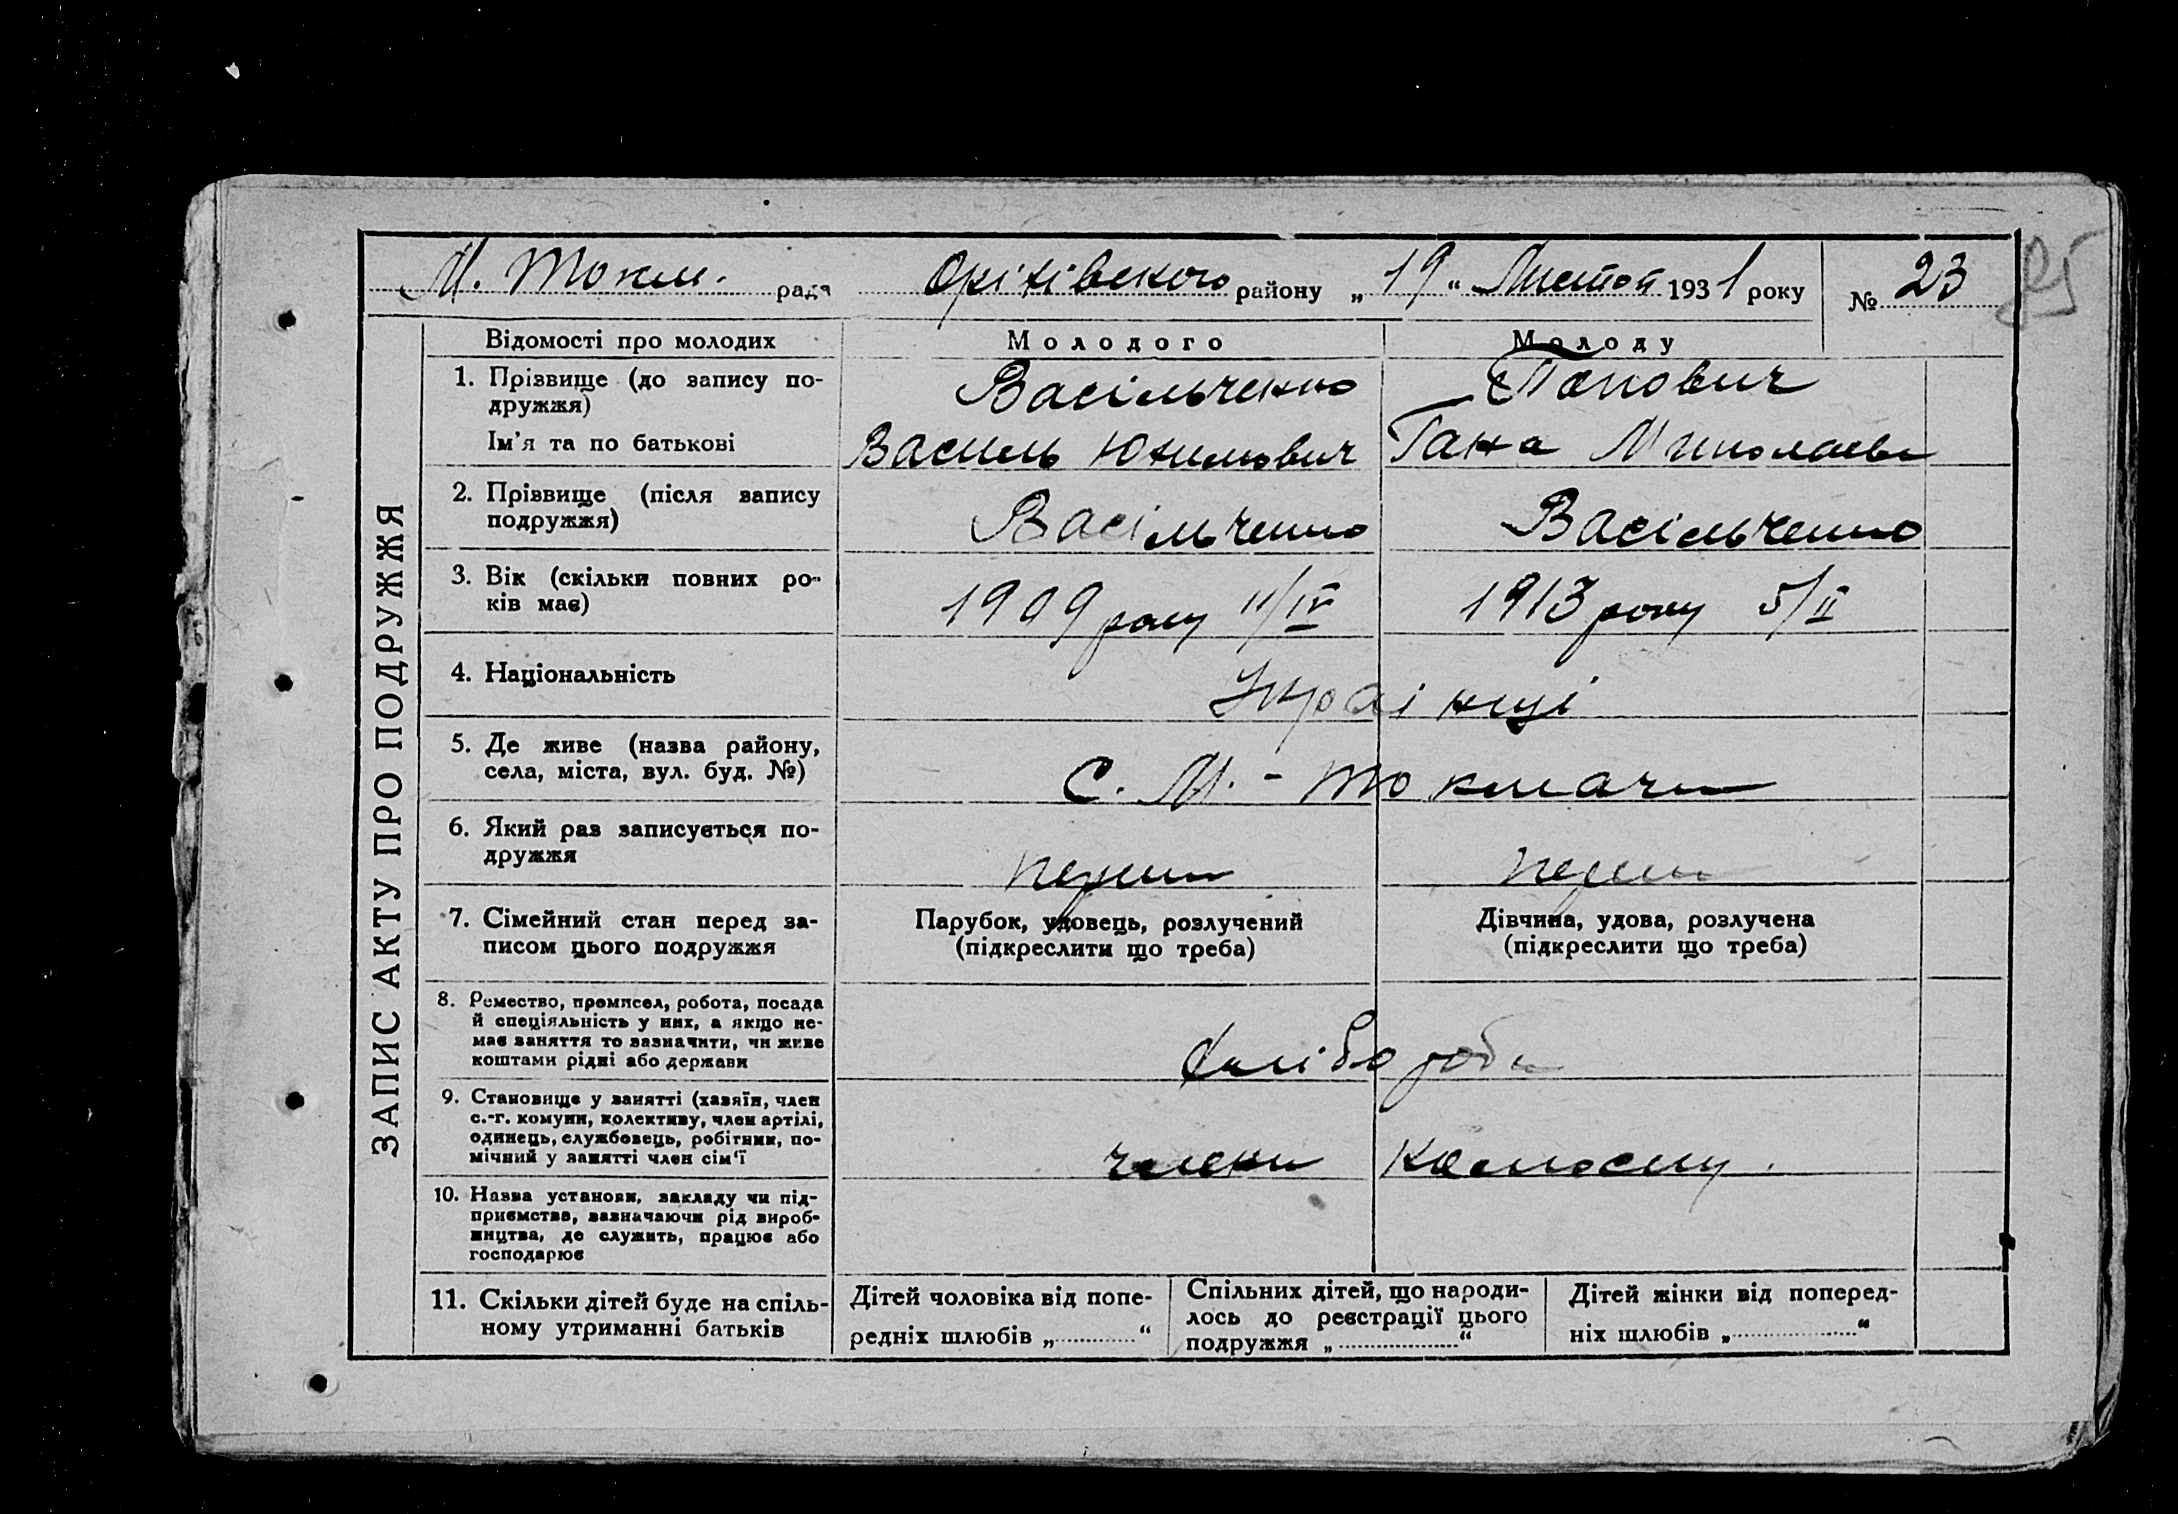 М. Токм. рада Оріхівського району „19“ Листоп 1931 року № 23
25
ЗАПИС АКТУ ПРО ПОДРУЖЖЯ
Відомості про молодих
Молодого
Молоду
1. Прізвище (до запису по-
дружжя)
Васільченко
Попович
Ім'я та по батькові
Василь Юхимович
Гана Миколаевн
2. Прізвище (після запису
подружжя)
Васільченко
Васільченко
3. Вік (скільки повних ро-
ків має)
1909 року 11/IV
1913 року 5/II
4. Національність
Украінці
5. Де живе (назва району,
села, міста, вул. буд. №)
С. М.-Токмачи
6. Який раз записується по-
дружжя
перши
перши
7. Сімейний стан перед за-
писом цього подружжя
Парубок, удовець, розлучений
(підкреслити що треба)
Дівчина, удова, розлучена
(підкреслити що треба)
8. Ремество, промисел, робота, посада
й спеціяльність у них, а якщо не-
має заняття то зазначити, чи живе
коштами рідні або держави
хліборобы
9. Становище у занятті (хазяїн, член
с.-г. комуни, колективу, член артілі,
одинець, службовець, робітник, по-
мічний у занятті член сім'ї
члени колгоспу.
10. Назва установи, закладу чи під-
приємства, зазначаючи рід вироб-
ництва, де служить, працює або
господарює
11. Скільки дітей буде на спіль-
ному утриманні батьків
Дітей чоловіка від попе-
редніх шлюбів „ “
Спільних дітей, що народи-
лось до реєстрації цього
подружжя „ “
Дітей жінки від поперед-
ніх шлюбів „ “